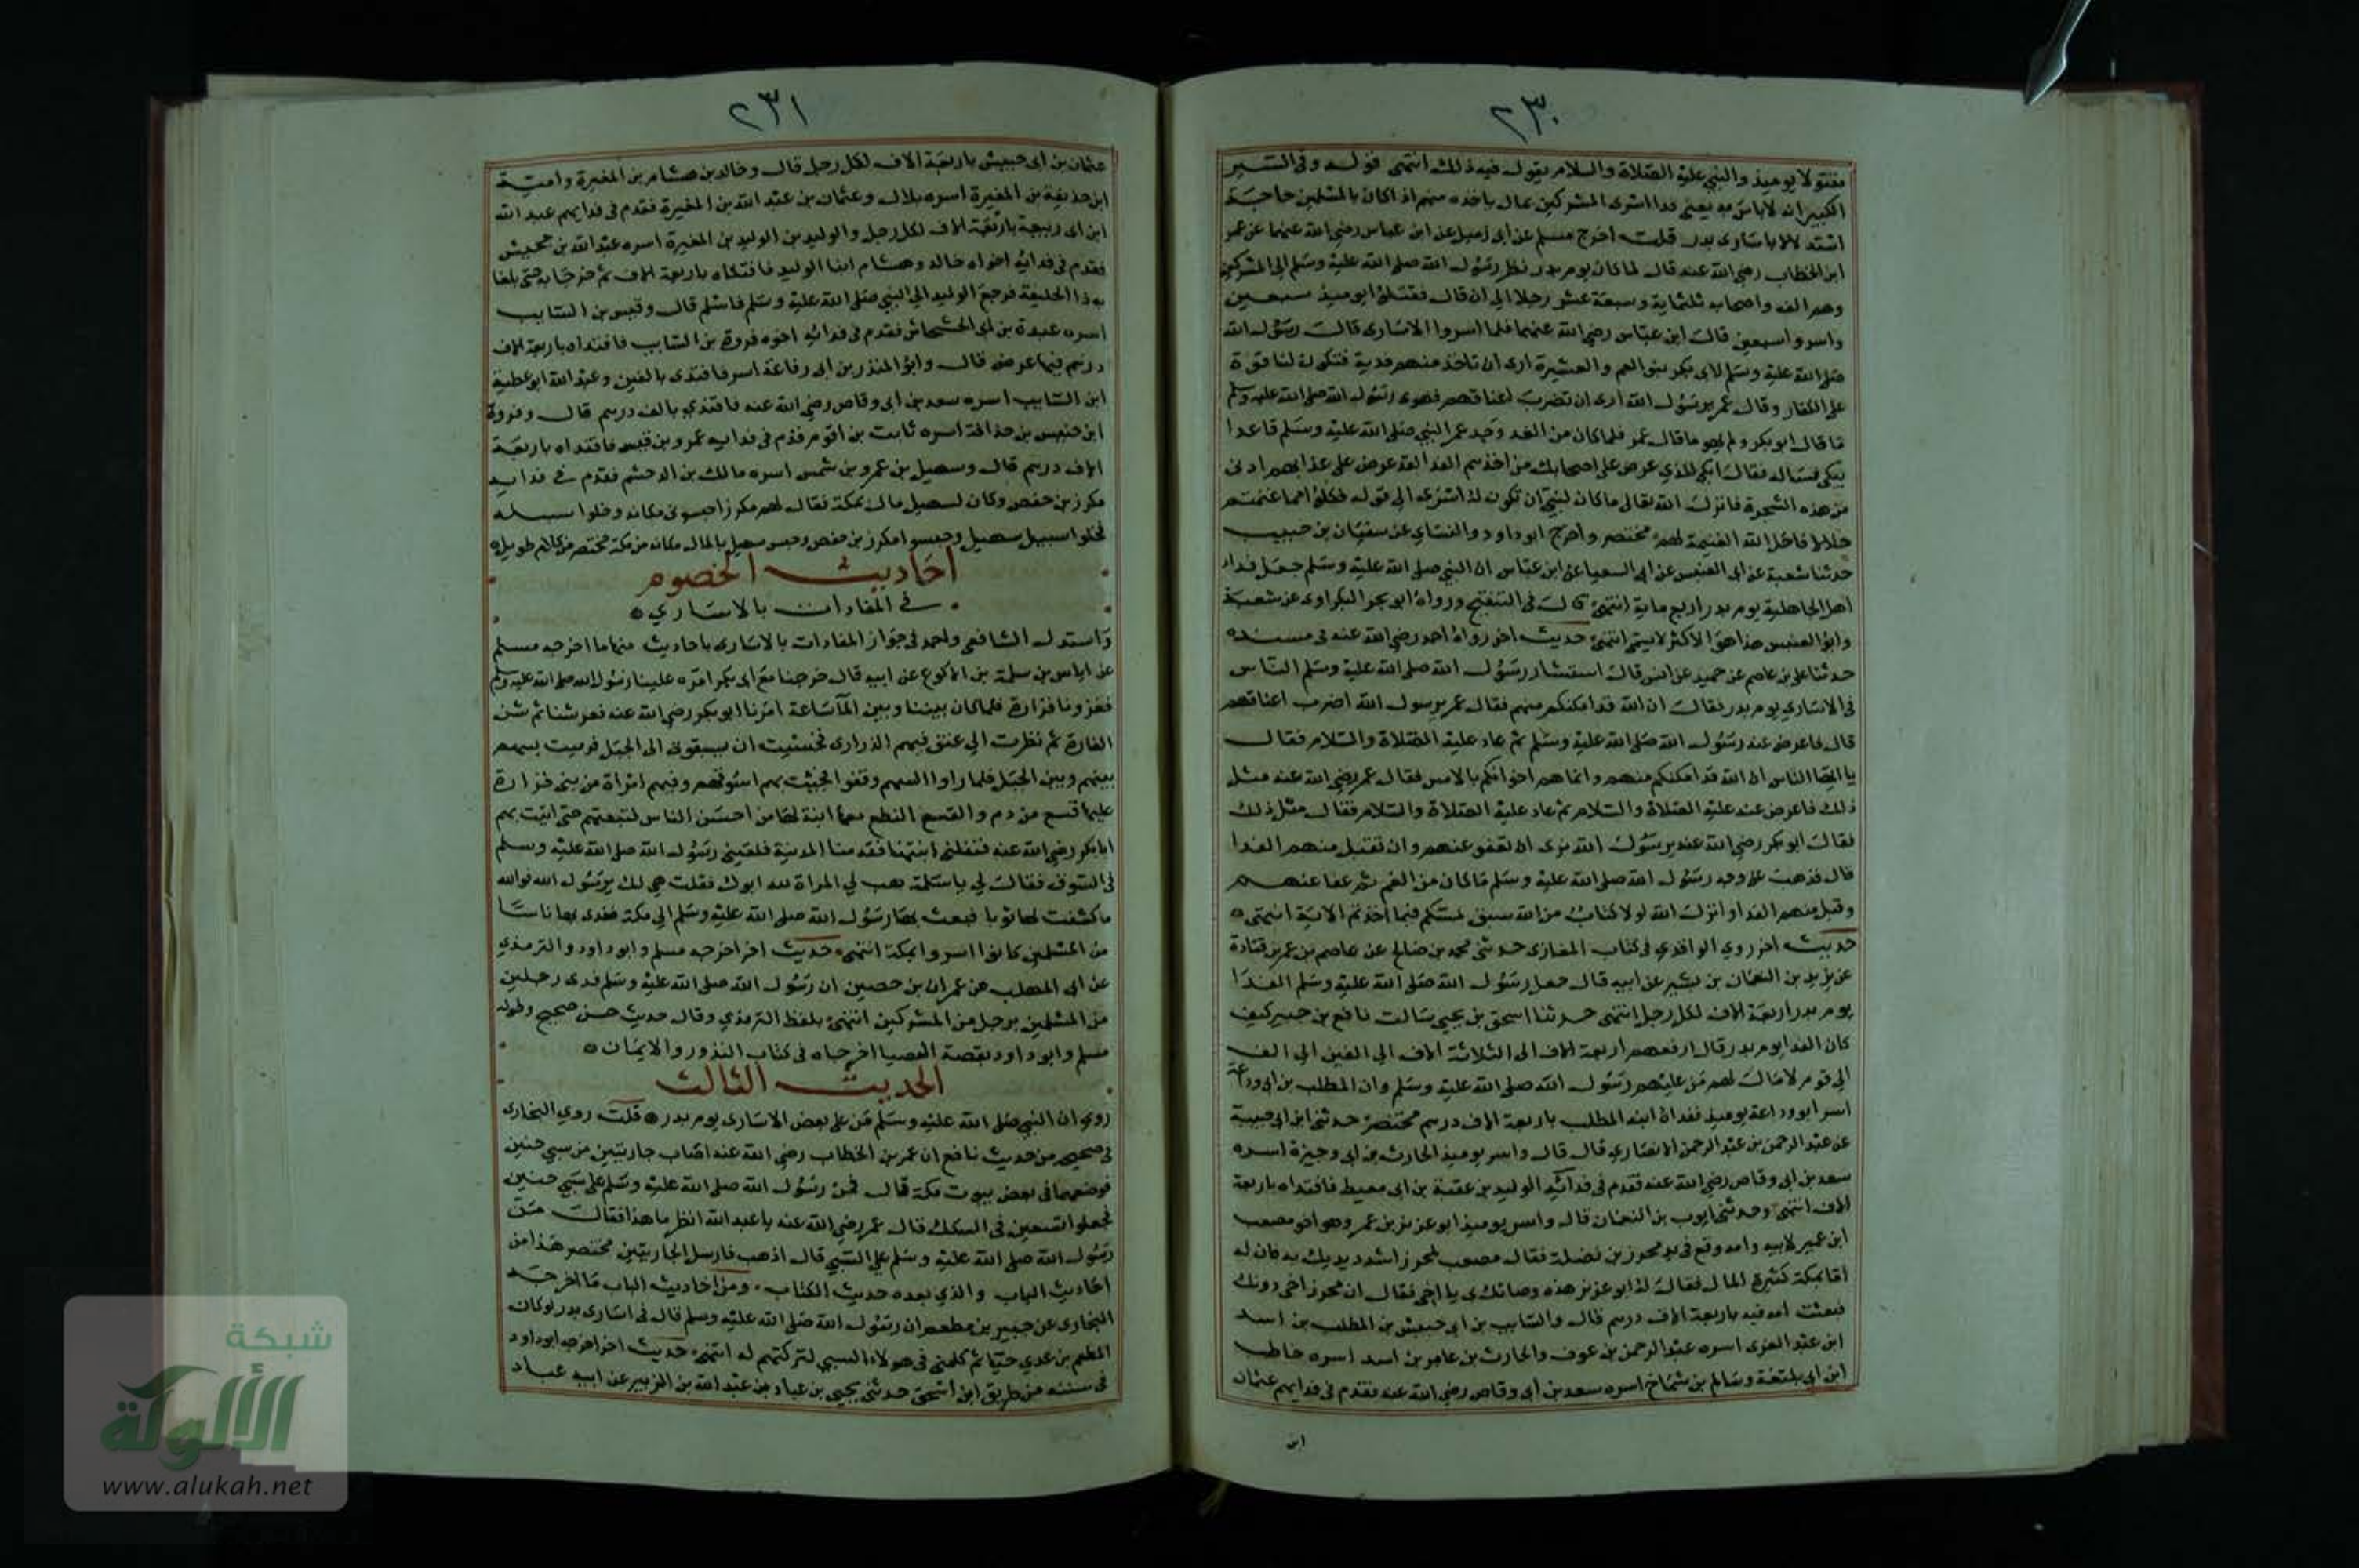 ٢٣٠
مقتولا يوميذ والنبي عليه الصلاة والسلام يقول فيه ذلك انتهى قوله وفي السير
الكبير انه لاباس به يعني فدا اسرى المشركين بمال ياخذه منهم اذا كان بالمسلمين حاجة
استدلالا باسارى بدر قلت اخرج مسلم عن ابى زميل عن ابن عباس رضي الله عنهما عن عمر
ابن الخطاب رضي الله عنه قال لما كان يوم بدر نظر رسول الله صلى الله عليه وسلم الى المشركين
وهم الف واصحابه ثلثماية وسبعة عشر رجلا الى ان قال فقتلوا يوميذ سبعين
واسروا سبعين قال ابن عباس رضي الله عنهما فلما اسروا الاسارى قال رسول الله
صلى الله عليه وسلم لابى بكر بنو العم والعشيرة ارى ان تاخذ منهم فدية فتكون لنا قوة
على الكفار وقال عمر يرسول الله ارى ان تضرب اعناقهم فهوى رسول الله صلى الله عليه وسلم
ما قال ابو بكر ولم يهو ما قال عمر فلما كان من الغد وجد عمر النبي صلى الله عليه وسلم قاعدا
يبكى فساله فقال ابكى للذي عرض على اصحابك من اخذهم الفدا لقد عرض على عذابهم ادنى
من هذه الشجرة فانزل الله تعالى ماكان لنبي ان تكون له اسرى الى قوله فكلوا مما غنمتم
حلالا فاحل الله الغنيمة لهم مختصر واخرج ابو داود والنساي عن سفيان بن حبيب
حدثنا شعبة عن ابى العنبس عن ابى الشعثا عن ابن عباس ان النبي صلى الله عليه وسلم جعل فداء
اهل الجاهلية يوم بدر اربع ماية انتهى قال في التنقيح ورواه ابو بحر البكراوى عن شعبة
وابو العنبس هذا هو الاكثر لايسمى انتهى حديث اخر رواه احمد رضي الله عنه في مسنده
حدثنا على بن عاصم عن حميد عن انس قال استشار رسول الله صلى الله عليه وسلم الناس
فى الاسارى يوم بدر فقال ان الله قد امكنكم منهم فقال عمر يرسول الله اضرب اعناقهم
قال فاعرض عنه رسول الله صلى الله عليه وسلم ثم عاد عليه الصلاة والسلام فقال
يا ايها الناس ان الله قد امكنكم منهم وانما هم اخوانكم بالامس فقال عمر رضي الله عنه مثل
ذلك فاعرض عنه عليه الصلاة والسلام ثم عاد عليه الصلاة والسلام فقال مثل ذلك
فقال ابو بكر رضي الله عنه يرسول الله نرى ان تعفو عنهم وان تقبل منهم الفدا
قال فذهب عن وجه رسول الله صلى الله عليه وسلم ماكان من الغم ثم عفا عنهم
وقبل منهم الفدا وانزل الله لولا كتاب من الله سبق لمسكم فيما اخذتم الاية انتهى
حديث اخر روى الواقدي في كتاب المغازى حدثنى محمد بن صالح عن عاصم بن عمر بن قتادة
عن يزيد بن النعمان بن بشير عن ابيه قال جعل رسول الله صلى الله عليه وسلم الفدا
يوم بدر اربعة الاف لكل رجل انتهى حدثنا اسحق بن يحيى سالت نافع بن جبير كيف
كان الفدا يوم بدر قال ارفعهم اربعة الاف الى الثلاثة الاف الى الفين الى الف
الى قوم لا مال لهم من عليهم رسول الله صلى الله عليه وسلم وان المطلب بن ابى وداعة
اسر ابو وداعة يوميذ ففداه ابنه المطلب باربعة الاف درهم مختصر حدثنى ابن ابى حبيبة
عن عبد الرحمن بن عبد الرحمن الانصاري قال قال واسر يوميذ الحارث بن ابى وجيزة اسره
سعد بن ابى وقاص رضي الله عنه فقدم فى فدائه الوليد بن عقبة بن ابى معيط فافتداه باربعة
الاف انتهى وحدثنى ايوب بن النعمان قال واسر يوميذ ابو عزيز بن عمر وهو اخو مصعب
ابن عمير لابيه وامه وقع في يد محرز بن نضلة فقال مصعب لمحرز اشدد يديك به فان له
اما بمكة كثيرة المال فقال له ابو عزيز هذه وصاتك بى يا اخى فقال ان محرز اخى دونك
فبعثت امه فيه باربعة الاف درهم قال والسايب بن ابى حبيش بن المطلب بن اسد
ابن عبد العزى اسره عبد الرحمن بن عوف والحارث بن عامر بن اسد اسره حاطب
ابن ابى بلتعة وسالم بن شماخ اسره سعد بن ابى وقاص رضي الله عنه فقدم فى فدايهم عثمان
ابن
٢٣١
عثمان بن ابى حبيش باربعة الاف لكل رجل قال وخالد بن هشام بن المغيرة وامية
ابن حذيفة بن المغيرة اسره بلال وعثمان بن عبد الله بن المغيرة فقدم فى فدايهم عبد الله
ابن ابى ربيعة باربعة الاف لكل رجل والوليد بن الوليد بن المغيرة اسره عبد الله بن جحش
فقدم فى فدائه اخواه خالد وهشام ابنا الوليد فافتكاه باربعة الاف ثم خرجا به حتى بلغا
به ذا الحليفة فرجع الوليد الى النبي صلى الله عليه وسلم فاسلم قال وقيس بن السايب
اسره عبدة بن ابى الحشحاش فقدم فى فدائه اخوه فروة بن السايب فافتداه باربعة الاف
درهم فيها عرض قال وابو المنذر بن ابى رفاعة اسر فافتدى بالفين وعبد الله ابو عطية
ابن السايب اسره سعد بن ابى وقاص رضي الله عنه فافتدي بالف درهم قال وفروة
ابن خنيس بن حذافة اسره ثابت بن اقرم فقدم فى فدايه عمرو بن قيس فافتداه باربعة
الاف درهم قال وسهيل بن عمرو بن شمس اسره مالك بن الدخشم فقدم فى فدايه
مكرز بن حفص وكان لسهيل مال بمكة فقال لهم مكرز احبسونى مكانه وخلوا سبيله
فخلوا سبيل سهيل وحبسوا مكرز بن حفص وحبس سهيل بالمال مكانه من مكة مختصر من كلام طويل
احاديث الخصوم
فى المفادات بالاسارى
واستدل الشافعى واحمد فى جواز المفادات بالاسارى باحاديث منها ما اخرجه مسلم
عن اياس بن سلمة بن الاكوع عن ابيه قال خرجنا مع ابى بكر امره علينا رسول الله صلى الله عليه وسلم
فغزونا فزارة فلما كان بيننا وبين المآ ساعة امرنا ابو بكر رضي الله عنه فعرشنا ثم شن
الغارة ثم نظرت الى عنق فيهم الذرارى فخشيت ان يسبقونى الى الجبل فرميت بسهم
بينهم وبين الجبل فلما راوا السهم وقفوا فجئت بهم اسوقهم وفيهم امراة من بنى فزارة
عليها قسع من دم والقسع النطع معها ابنة لها من احسن الناس لتبعتهم حتى اتيت بهم
ابا بكر رضي الله عنه فنفلنى ابنتها فقدمنا المدينة فلقينى رسول الله صلى الله عليه وسلم
فى السوق فقال لي ياسلمة هب لي المراة لله ابوك فقلت هى لك يرسول الله فوالله
ما كشفت لها ثوبا فبعث بها رسول الله صلى الله عليه وسلم الى مكة ففدى بها ناسا
من المسلمين كانوا اسروا بمكة انتهى حديث اخر اخرجه مسلم وابو داود والترمذي
عن ابى المهلب عن عمران بن حصين ان رسول الله صلى الله عليه وسلم فدى رجلين
من المسلمين برجل من المشركين انتهى بلفظ الترمذي وقال حديث حسن صحيح وطوله
مسلم وابو داود بقصة العضبا اخرجاه فى كتاب النذور والايمان
الحديث الثالث
روي ان النبي صلى الله عليه وسلم من على بعض الاسارى يوم بدر قلت روي البخارى
فى صحيحه من حديث نافع ان عمر بن الخطاب رضي الله عنه اصاب جاريتين من سبي حنين
فوضعهما فى بعض بيوت مكة قال فمن رسول الله صلى الله عليه وسلم على سبي حنين
فجعلوا يسعون فى السكك قال عمر رضي الله عنه يا عبد الله انظر ما هذا فقال من
رسول الله صلى الله عليه وسلم على السبي قال اذهب فارسل الجاريتين مختصر هذا من
احاديث الباب والذي بعده حديث الكتاب ومن احاديث الباب ما اخرجه
البخارى عن جبير بن مطعم ان رسول الله صلى الله عليه وسلم قال فى اسارى بدر لوكان
المطعم بن عدي حيا ثم كلمنى فى هولاء السبي لتركتهم له انتهى حديث اخر اخرجه ابو داود
فى سننه من طريق ابن اسحق حدثنى يحيى بن عباد بن عبد الله بن الزبير عن ابيه عباد
شبكة
الألوكة
www.alukah.net